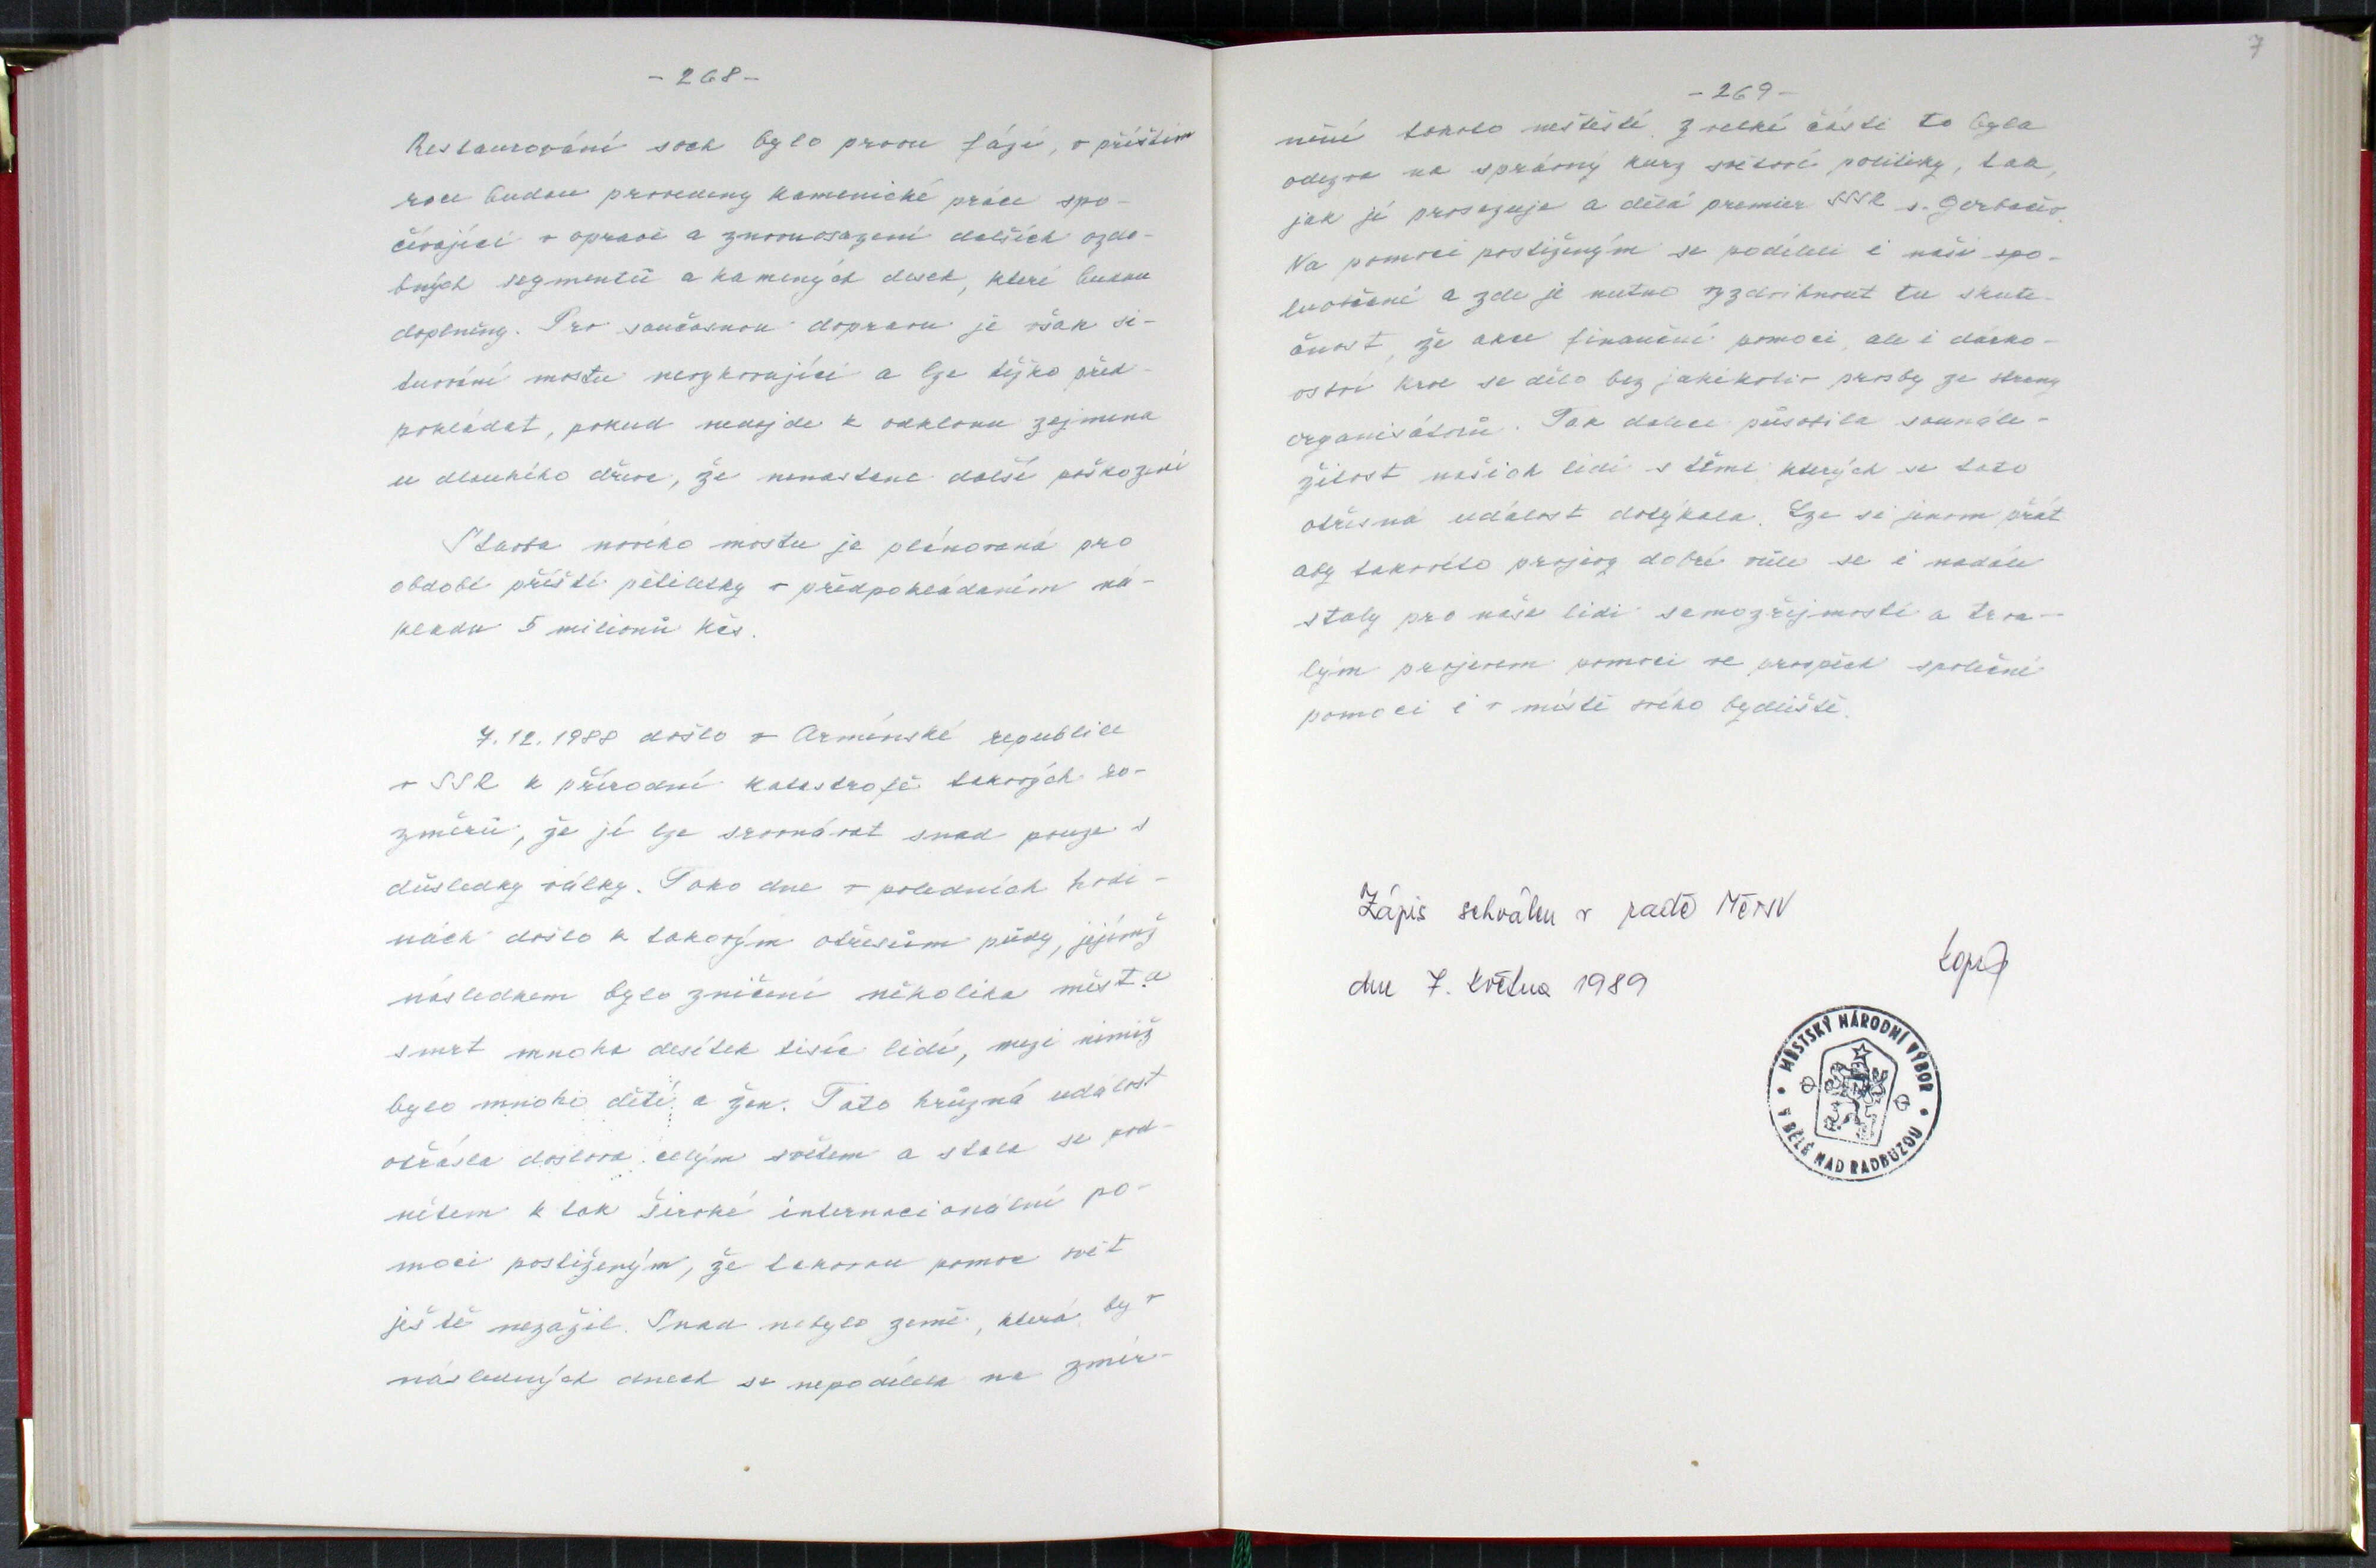 - 268 -
Restaurování soch bylo prvou fází, v příštím
roce budou provedeny kamenické práce spo-
čívající v opravě a znovuosazení dalších ozdo-
bných segmentů a kamených desek, které budou
doplněny. Pro současnou dopravu je však si-
tuování mostu nevyhovující a lze těžko před-
pokládat, pokud nedojde k odklonu zejmena
u dlouhého dřeva, že nenastane další poškození
Stavba nového mostu je plánovaná pro
období příští pětiletky v předpokládaném ná-
kladu 5 milionů Kčs.
7.12.1988 došlo v Arménské republice
v SSR k přírodní katastrofě takových ro-
změrů, že jí lze srovnávat snad pouze s
důsledky války. Toho dne v poledních hodi-
nách došlo k takovým otřesům půdy, jejímž
následkem bylo zničení několika měst a
smrt mnoha desítek tisíc lidí, mezi nimiž
bylo mnoho dětí a žen. Tato hrůzná událost
otřásla doslova celým světem a stala se pod-
nětem k tak široké internacionální po-
moci postiženým, že takovou pomoc svět
ještě nezažil. Snad nebylo země, která by v
následných dnech se nepodílela na zmír-
7
- 269 -
nění tohoto neštěstí. Z velké části to byla
odezva na správný kurz světové politiky, tak,
jak jí prosazuje a dělá premier SSSR s. Gorbačov.
Na pomoci postiženým se podíleli i naši spo-
luobčané a zde je nutno vyzdvihnout tu skute-
čnost, že akce finanční pomoci, ale i dárko-
vství krve se dělo bez jakékoliv prosby ze strany
organisátorů. Tak dalece působila sounále-
žitost našich lidí s těmi, kterých se tato
otřesná událost dotýkala. Lze si jenom přát
aby takovéto projevy dobré vůle se i nadále
staly pro naše lidi samozřejmostí a trva-
lým projevem pomoci ve prospěch společné
pomoci i v místě svého bydliště.
Zápis schválen v radě MěNV
dne 7. května 1989
MĚSTSKÝ NÁRODNÍ VÝBOR
V BĚLÉ NAD RADBUZOU